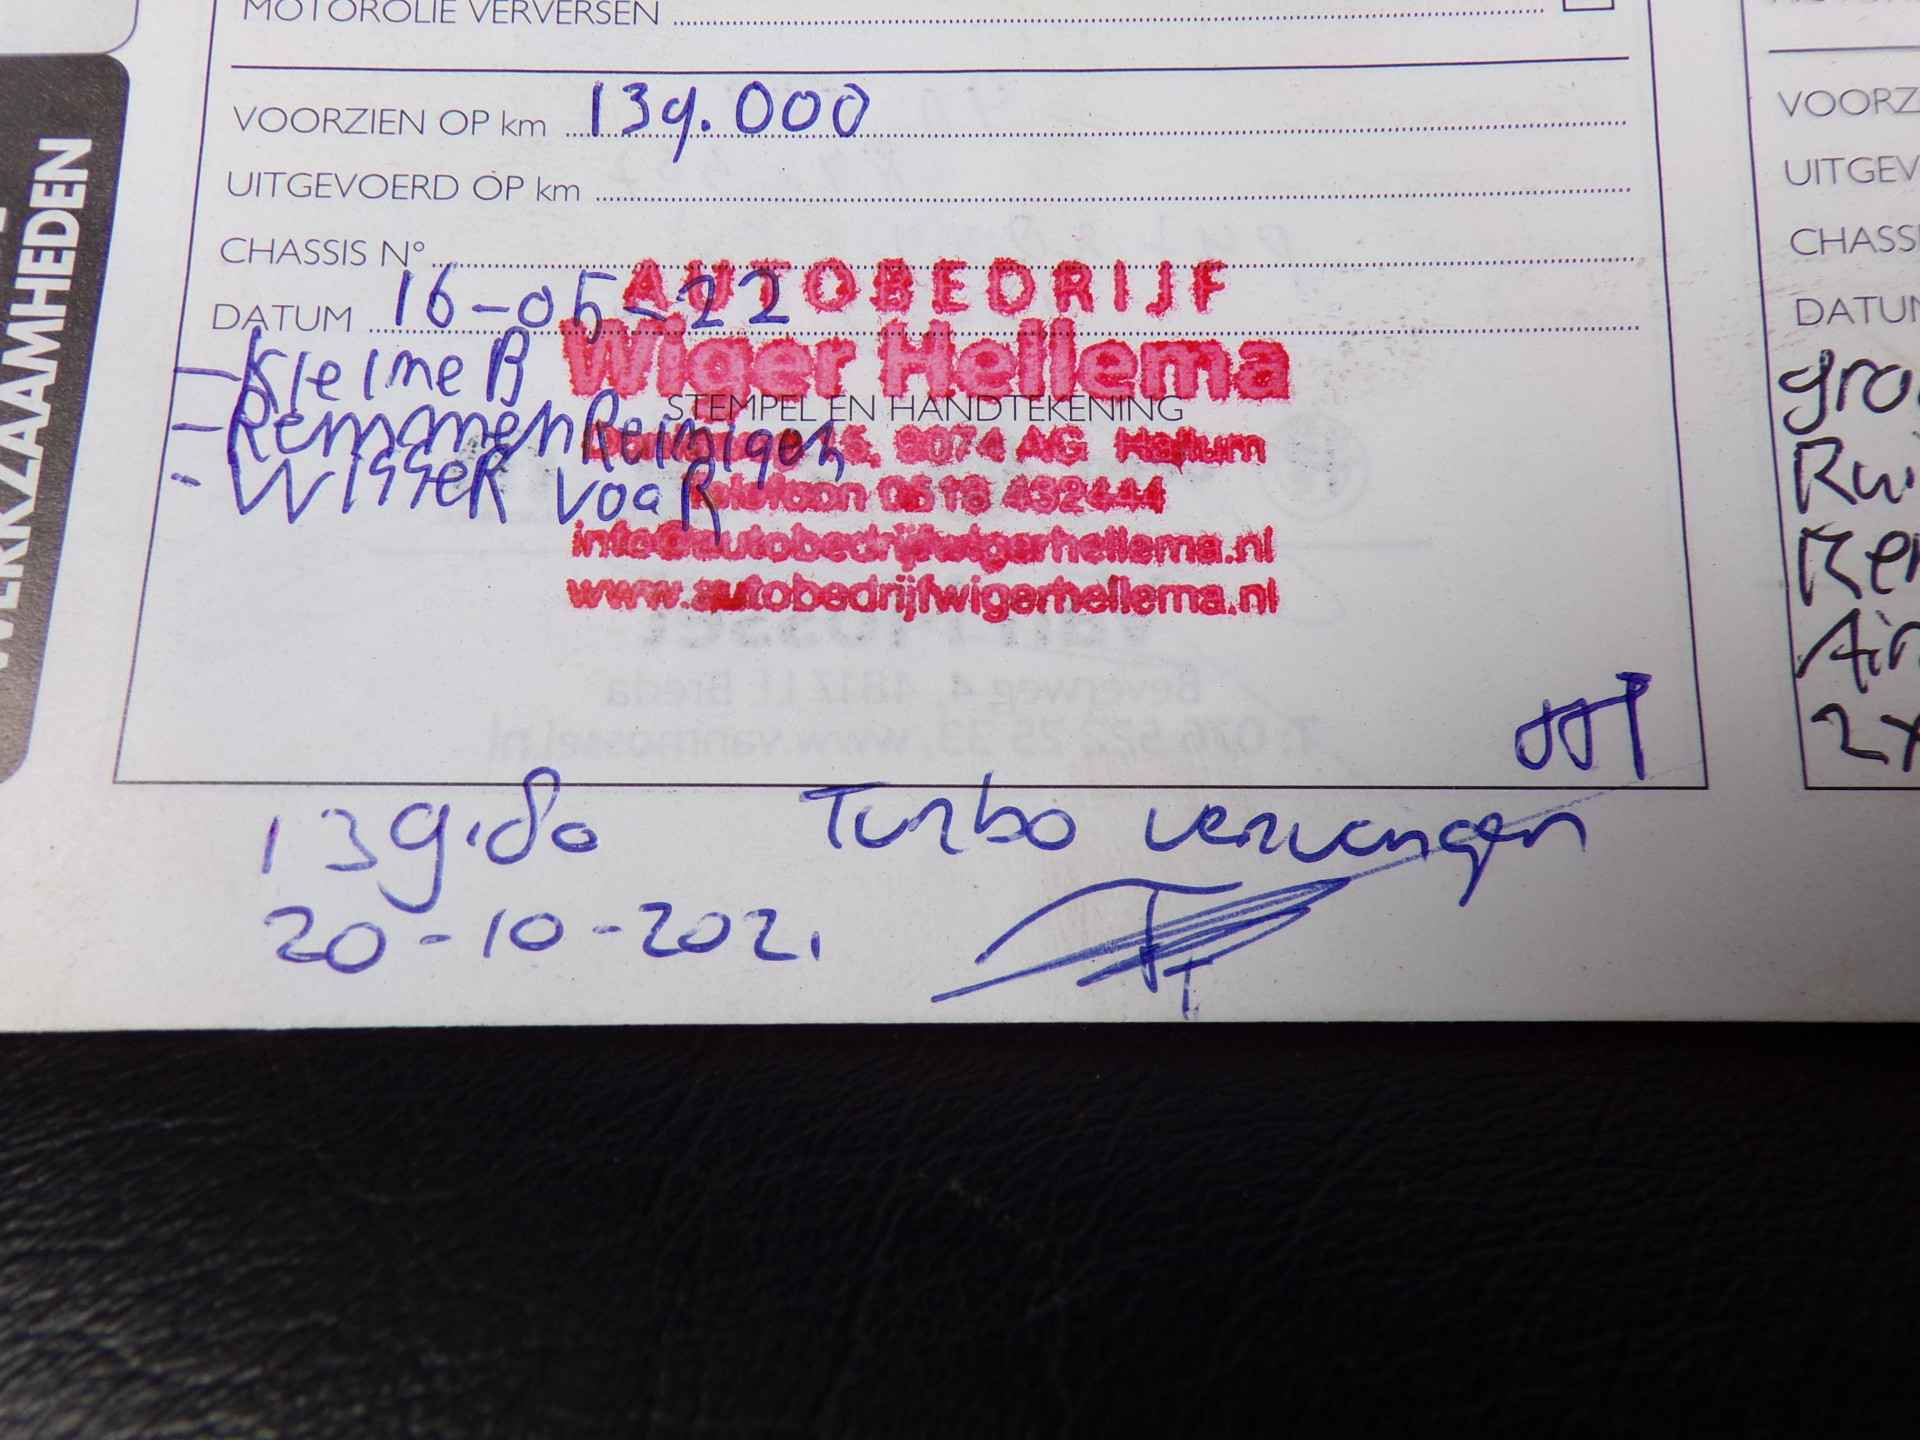 MOTOROLIE VERVERSEN
VOORZIEN OP km 139.000
UITGEVOERD OP km
CHASSIS N°
DATUM 16-05-22
AUTOBEDRIJF
Wiger Hellema
- Kleine B
STEMPEL EN HANDTEKENING
- Remmen Reinigen
15, 9074 AG Hallum
- WisseR VooR
Telefoon 0518 432444
info@autobedrijfwigerhellema.nl
www.autobedrijfwigerhellema.nl
139.80 Turbo vervangen
20-10-2021
WERKZAAMHEDEN
VOORZ
UITGEV
CHASSI
DATUM
gro
Rui
Rem
Air
2x